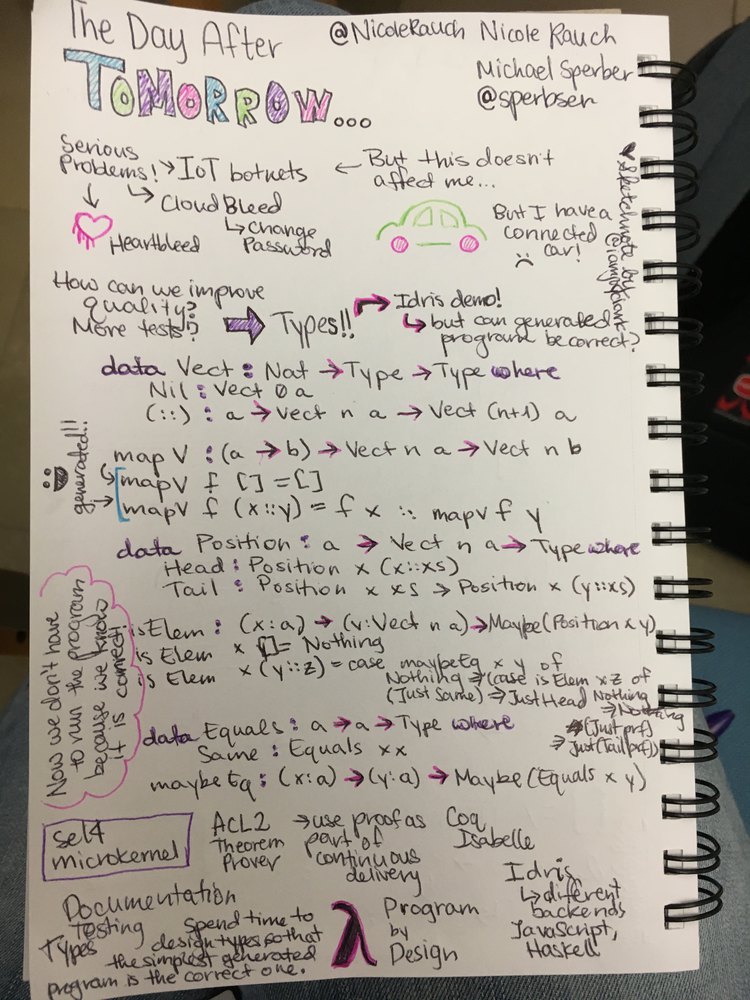 The Day After
TOMORROW...
@NicoleRauch Nicole Rauch
Michael Sperber
@sperbser
Serious
Problems! → IoT botnets
↳ CloudBleed
↳ Change
Password
Heartbleed
← But this doesn't
affect me...
But I have a
connected
car!
♥ Sketchnote by
How can we improve
quality?
More tests?
Types!!
Idris demo!
↳ but can generated
program be correct?
data Vect : Nat → Type → Type where
Nil : Vect 0 a
(::) : a → Vect n a → Vect (n+1) a
generated!!
mapV : (a → b) → Vect n a → Vect n b
mapV f [] = []
mapV f (x::y) = f x :: mapV f y
data Position : a → Vect n a → Type where
Head : Position x (x::xs)
Tail : Position x xs → Position x (y::xs)
Now we don't have
to run the program
because we know
it is correct!
isElem : (x:a) → (v:Vect n a) → Maybe (Position x y)
isElem x [] = Nothing
isElem x (y::z) = case maybeEq x y of
Nothing ⇒ (case isElem x z of
(Just Same) ⇒ Just Head Nothing
⇒ Nothing
(Just prf)
⇒ Just (Tail prf))
data Equals : a → a → Type where
Same : Equals x x
maybeEq : (x:a) → (y:a) → Maybe (Equals x y)
sel4
microkernel
ACL2
Theorem
Prover
→ use proof as
part of
continuous
delivery
Coq
Isabelle
Idris
↳ different
backends
JavaScript,
Haskell
Documentation
Testing
Types
Spend time to
design types so that
the simplest generated
program is the correct one.
λ
Program
by
Design